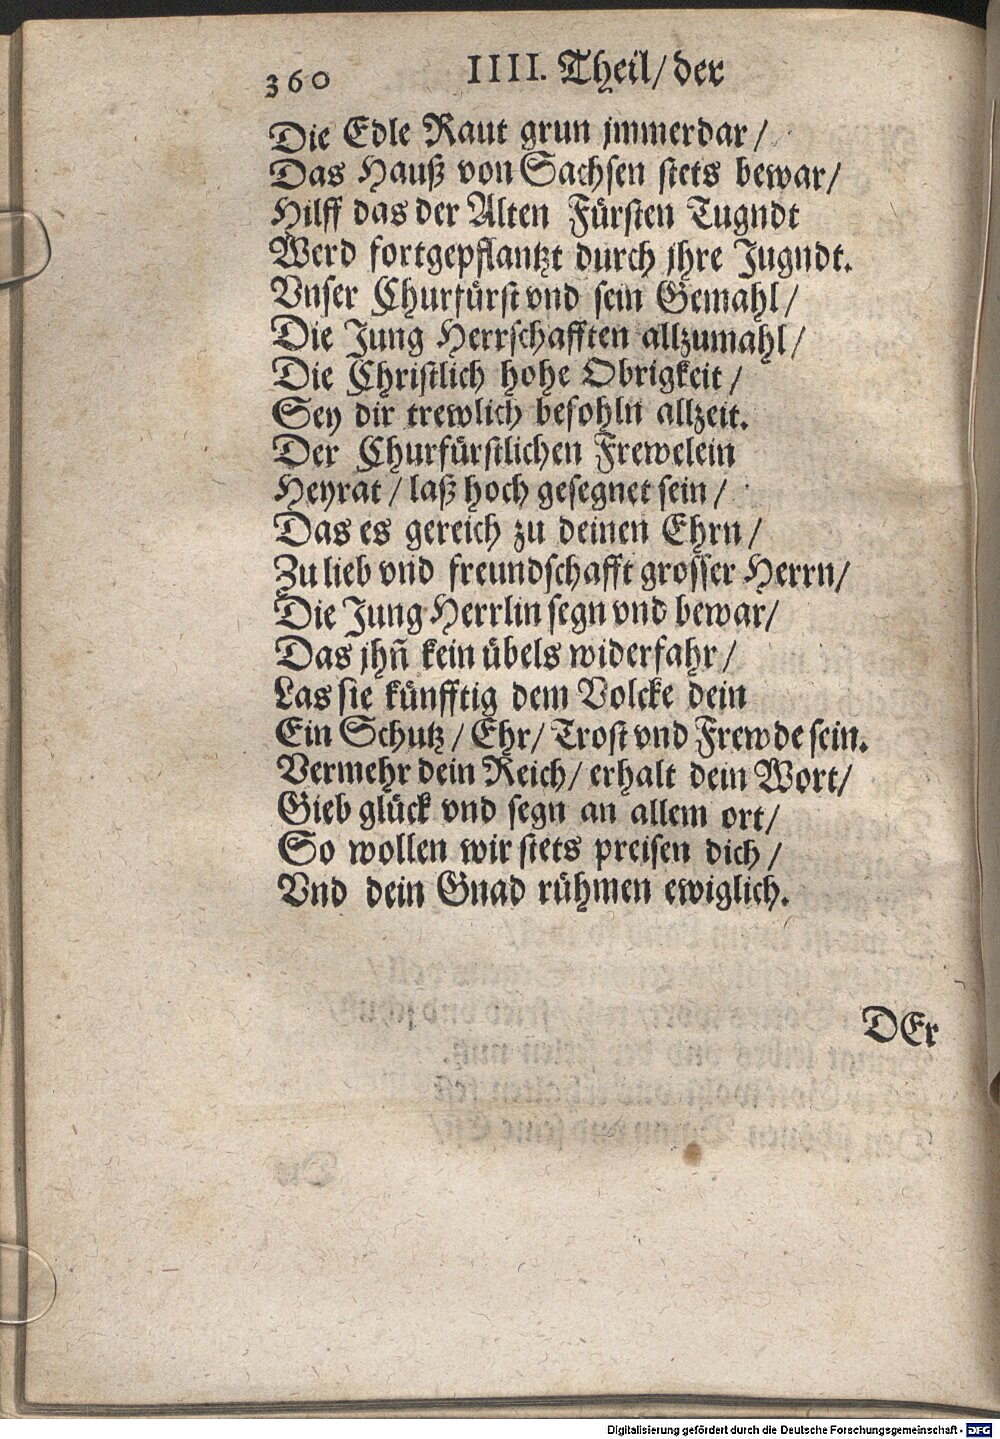 360 IIII. Theil/ der
Die Edle Raut grun jmmerdar/
Das Hauß von Sachsen stets bewar/
Hilff das der Alten Fürsten Tugndt
Werd fortgepflantzt durch jhre Jugndt.
Vnser Churfürst vnd sein Gemahl/
Die Jung Herrschafften allzumahl/
Die Christlich hohe Obrigkeit/
Sey dir trewlich befohln allzeit.
Der Churfürstlichen Frewelein
Heyrat/ laß hoch gesegnet sein/
Das es gereich zu deinen Ehrn/
Zu lieb vnd freundschafft grosser Herrn/
Die Jung Herrlin segn vnd bewar/
Das jhn̄ kein übels widerfahr/
Las sie künfftig dem Volcke dein
Ein Schutz/ Ehr/ Trost vnd Frewde sein.
Vermehr dein Reich/ erhalt dein Wort/
Gieb glück vnd segn an allem ort/
So wollen wir stets preisen dich/
Vnd dein Gnad rühmen ewiglich.
DEr
Digitalisierung gefördert durch die Deutsche Forschungsgemeinschaft - DFG